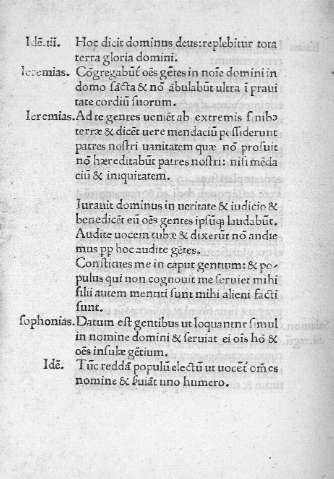 Idē. iii. Hoc dicit dominus deus: replebitur tota
terra gloria domini.
Ieremias. Cōgregabūt̃ oēs gētes in noīe domini in
domo sācta & nō ābulabūt ultra ī praui
tate cordiū suorum.
Ieremias. Ad te gentes ueniēt ab extremis finibꝰ
terræ & dicēt uere mendaciū possiderunt
patres nostri uanitatem quæ nō profuit
nō hæreditabūt patres nostri: nisi mēda
ciū & iniquitatem.
Iurauit dominus in ueritate & iudicio &
benedicēt eū oēs gentes ipsūqꝫ laudabūt.
Audite uocem tubæ & dixerūt nō audie
mus pp hoc audite gētes.
Constitues me in caput gentium: & po/
pulus qui non cognouit me seruiet mihi
filii autem mentiti sunt mihi alieni facti
sunt.
Sophonias. Datum est gentibus ut loquantur simul
in nomine domini & seruiāt ei oīs hō &
oēs insulæ gētium.
Idē. Tūc reddā populū electū ut uocēt om̄es
nomine & ſuiāt uno humero.